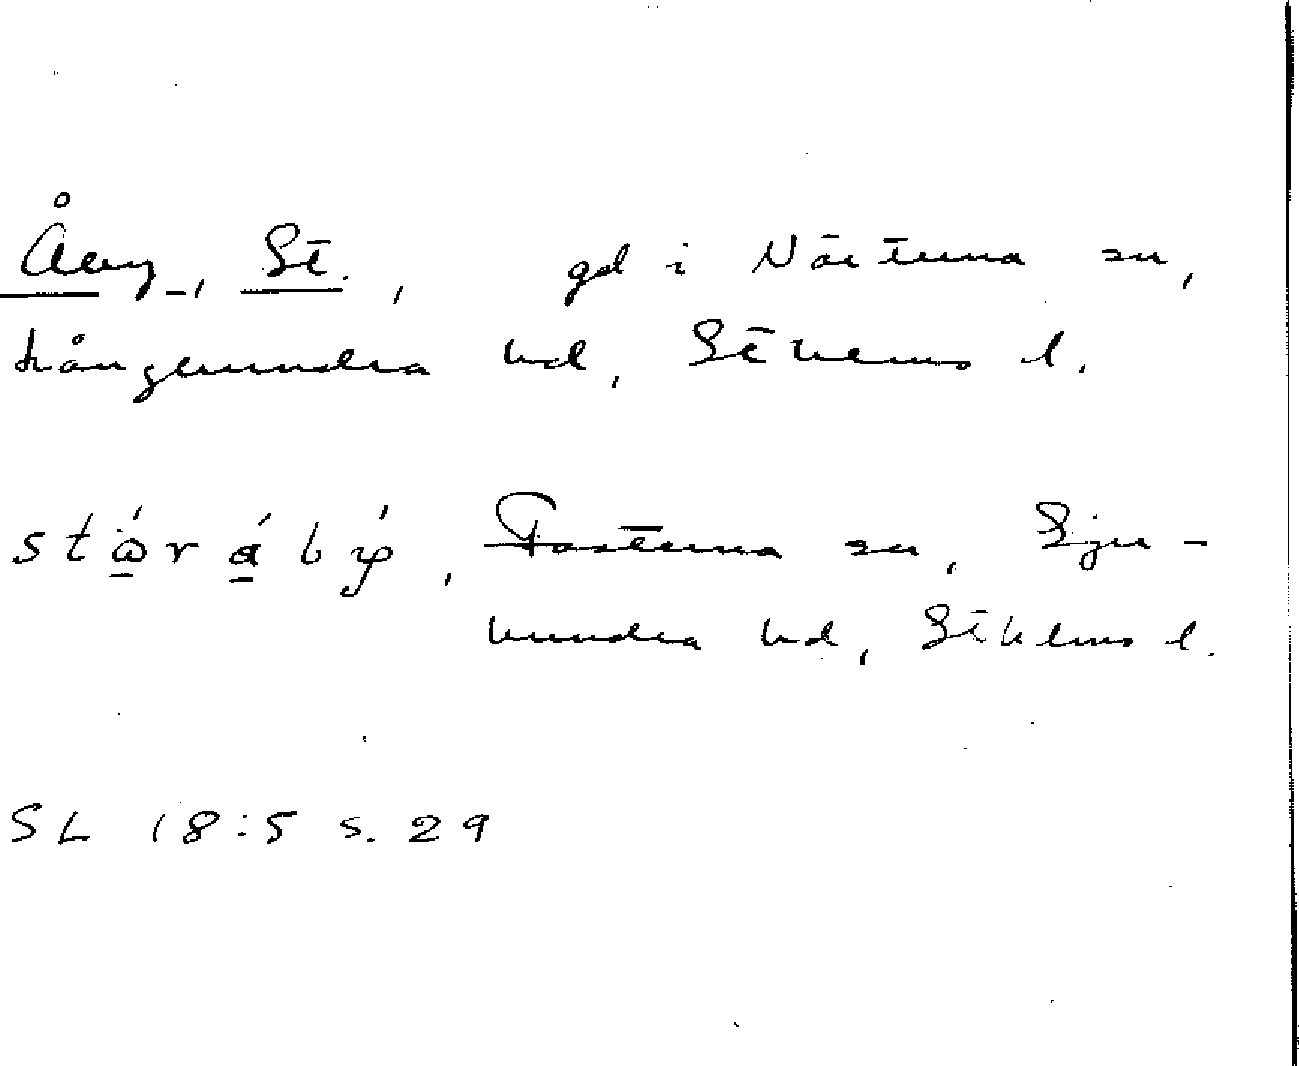 Åby, St., gd i Närtuna sn,
Långhundra hd, Sthlms l.
stɷ́rábẏ, Fasterna sn, Sju-
hundra hd, Sthlms l.
SL 18:5 s. 29